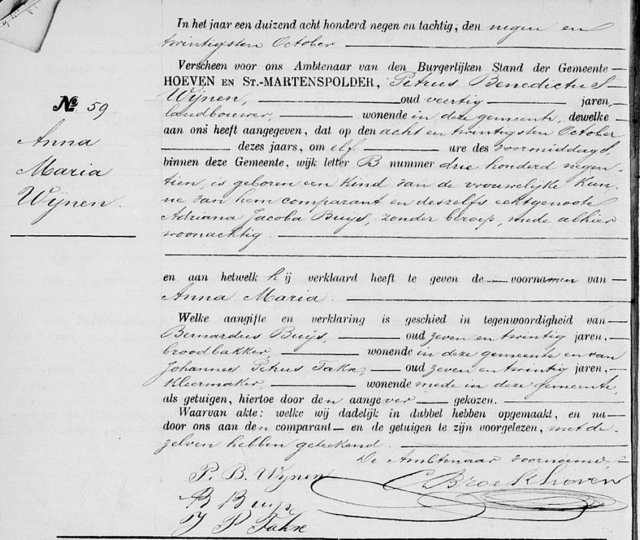 In het jaar een duizend acht honderd negen en tachtig, den negen en
twintigsten October
Verscheen voor ons Ambtenaar van den Burgerlijken Stand der Gemeente
HOEVEN EN ST.-MARTENSPOLDER, Petrus Benedictus
Wijnen, oud veertig jaren,
landbouwer, wonende in deze gemeente, dewelke
aan ons heeft aangegeven, dat op den acht en twintigsten October
dezes jaars, om elf ure des voormiddags
binnen deze Gemeente, wijk letter B nummer drie honderd negen
tien, is geboren een kind van de vrouwelijke kun
ne van hem comparant en deszelfs echtgenoote
Adriana Jacoba Buijs, zonder beroep, mede alhier
woonachtig.
No 59
Anna
Maria
Wijnen.
en aan hetwelk hij verklaard heeft te geven de voornamen van
Anna Maria
Welke aangifte en verklaring is geschied in tegenwoordigheid van
Bernardus Buijs, oud zeven en twintig jaren,
broodbakker, wonende in deze gemeente en van
Johannes Petrus Taks, oud zeven en twintig jaren,
kleermaker, wonende mede in deze gemeente,
als getuigen, hiertoe door den aangever gekozen.
Waarvan akte: welke wij dadelijk in dubbel hebben opgemaakt, en na
door ons aan den comparant en de getuigen te zijn voorgelezen, met de
zelven hebben geteekend.
De Ambtenaar voornoemd,
P. B. Wijnen
B Buijs
J P Takx
C Broekhoven